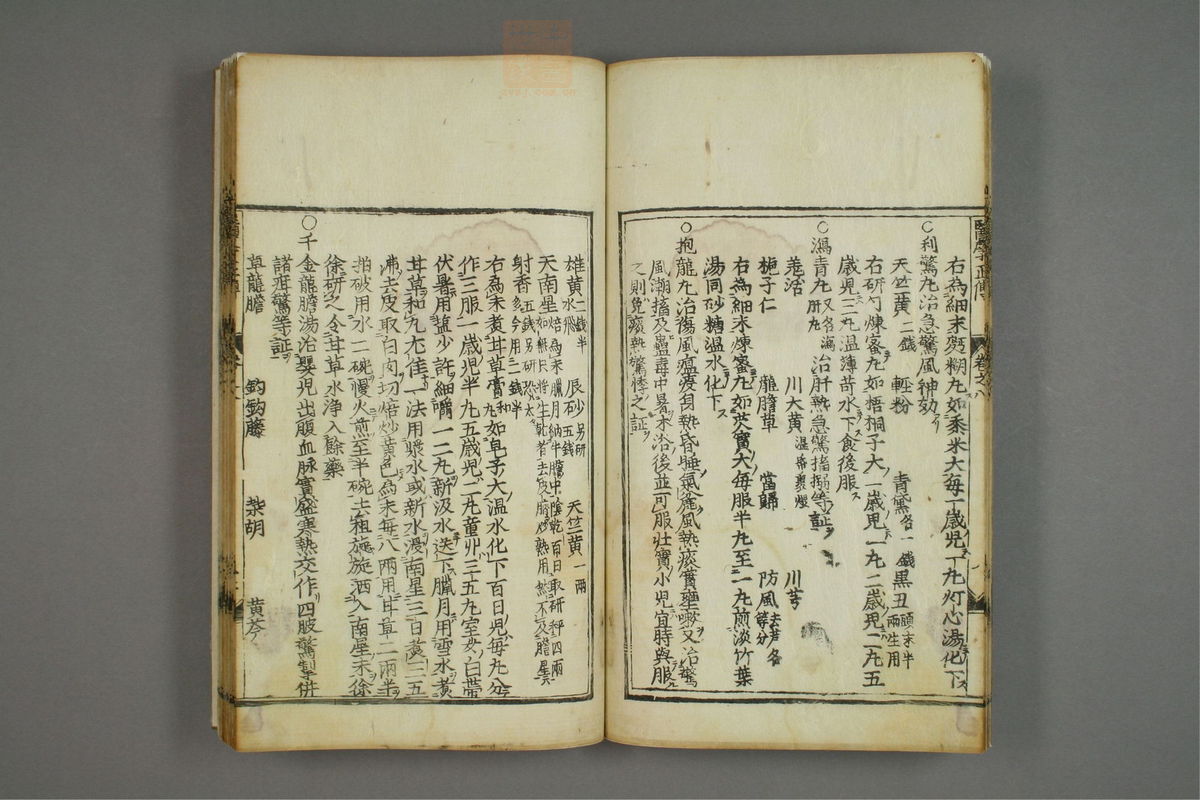 右為細末麪糊丸如黍米大每一歲兒一丸灯心湯化下
○利驚丸治急驚風神効
天竺黃二錢　輕粉　青黛各一錢　黑丑頭末半兩生用
右研勻煉蜜丸如梧桐子大一歲兒一丸二歲兒二丸五
歲兒三丸温薄荷水下食後服
○瀉青丸又名瀉肝丸治肝熱急驚搐搦等証
羗活　川大黄湿帋裹煨　川芎
梔子仁　龍膽草　當歸　防風去芦各等分
右為細末煉蜜丸如芡實大每服半丸至一丸煎淡竹葉
湯同砂糖温水化下
○抱龍丸治傷風瘟疫身熱昏睡氣麄風熱痰實壅嗽又治驚
風潮搐及蠱毒中暑沐浴後並可服壯實小兒宜時與服
之則免痰熱驚悸之証
雄黃水飛一錢半　辰砂另研五錢　天竺黃一兩
天南星
射香
右為末煮甘草膏和丸如皂子大温水化下百日兒每丸分
作三服一歲兒半丸五歲兒二丸童丱三五丸室女白帶
伏暑用塩少許細嚼一二丸新汲水送下臘月用雪水煮
甘草和丸尤佳一法用漿水或新水浸南星三日煮三五
沸去皮取白肉切焙炒黄色為末每八兩用甘草二兩半
拍破用水二碗慢火煎至半碗去粗旋旋洒入南星末徐
徐研之令甘草水浄入餘藥
○千金龍膽湯治嬰兒出腹血脉實盛寒熱交作四肢驚掣併
諸疳驚等証
草龍膽　釣鈎藤　柴胡　黄芩